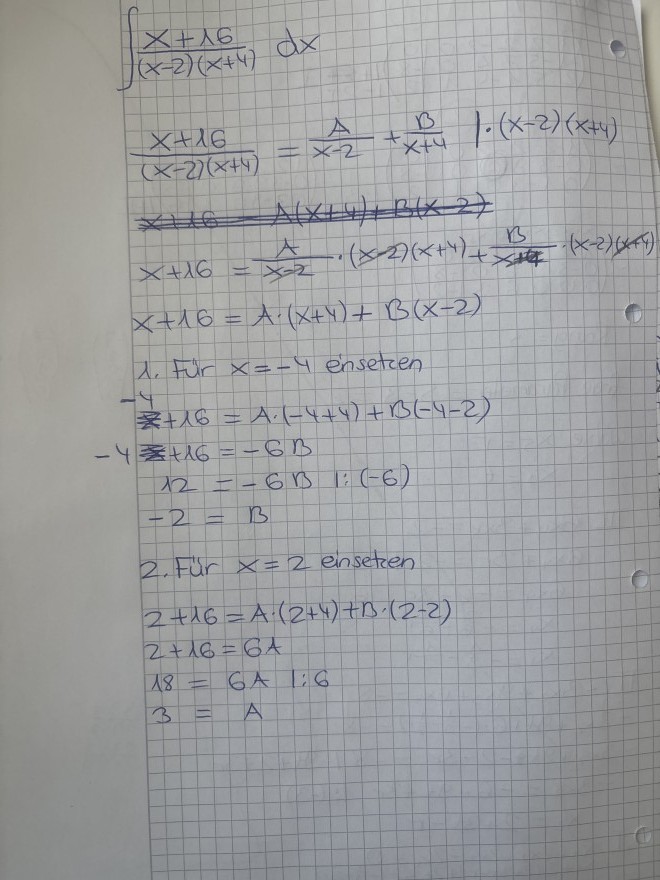 ∫ x+16 / (x-2)(x+4) dx
x+16 / (x-2)(x+4) = A / x-2 + B / x+4 |·(x-2)(x+4)
x+16 = A(x+4)+B(x-2)
x+16 = A / x-2 ·(x-2)(x+4)+ B / x+4 ·(x-2)(x+4)
x+16 = A·(x+4)+B(x-2)
1. Für x=-4 einsetzen
-4+16 = A·(-4+4)+B(-4-2)
-4+16 = -6B
12 = -6B |:(-6)
-2 = B
2. Für x=2 einsetzen
2+16=A·(2+4)+B·(2-2)
2+16=6A
18 = 6A |:6
3 = A